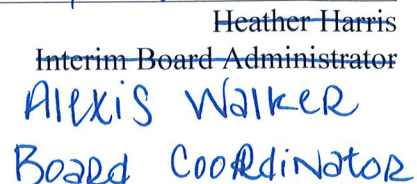 Heather Harris
Interim Board Administrator
Alexis Walker
Board Coordinator